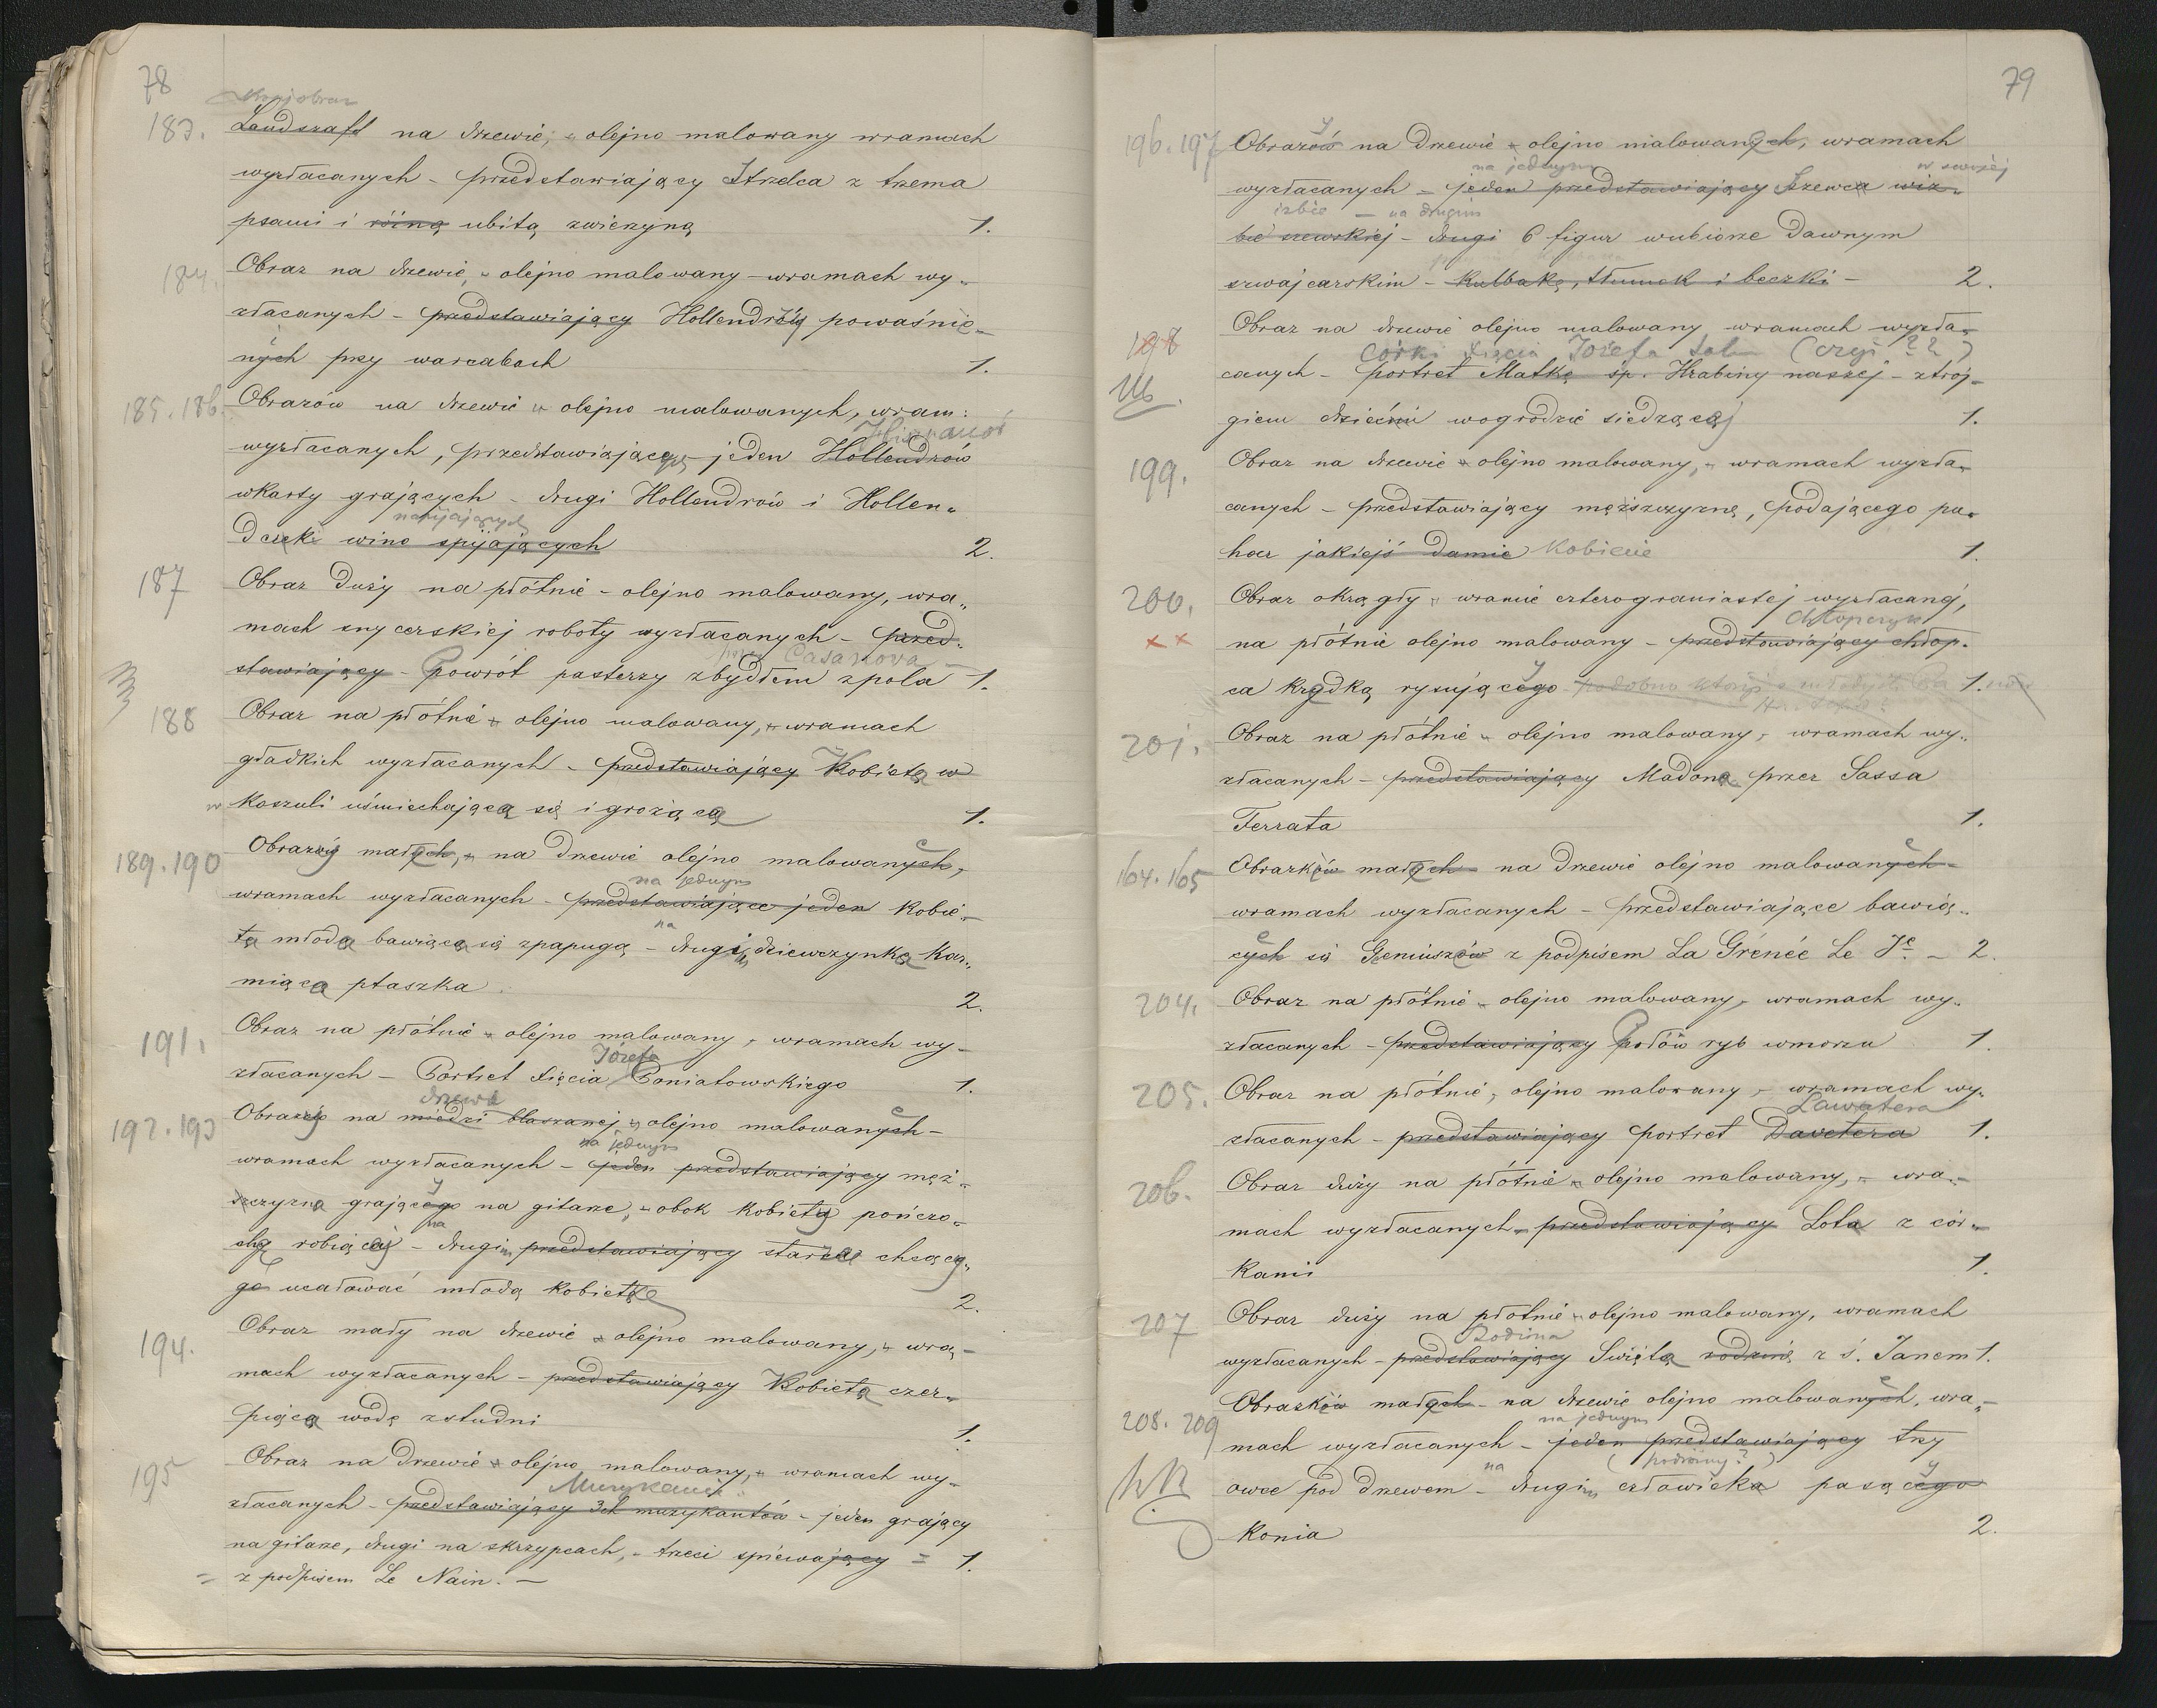 78
Krajobraz
183. Landszaft na drzewie, olejno malowany wramach
wyzłacanych - przedstawiający Strzelca z trzema
psami i różną ubitą zwierzyną 1.
184. Obraz na drzewie, olejno malowany - wramach wy-
złacanych - przedstawiający Hollendrów powaśnio-
nych przy warcabach 1.
185. 186. Obrazów na drzewie olejno malowanych, wram:
Hiszpanów
wyzłacanych, przedstawiające - jeden Hollendrów
wkarty grających - drugi Hollendrów i Hollen-
napijających
derki wino spijających 2.
187 Obraz duży na płótnie - olejno malowany, wra-
mach snycerskiej roboty wyzłacanych - przed-
przez Casanova
stawiający - Powrót pasterzy zbydłem zpola 1.
188 Obraz na płótnie olejno malowany, wramach
gładkich wyzłacanych - przedstawiający Kobietę w
w koszuli uśmiechającą się i grożącą 1.
189. 190 Obrazy małych, na drzewie olejno malowanych,
na jednym
wramach wyzłacanych - przedstawiające jeden kobie-
na
tę młodą bawiącą się zpapugą - drugi dziewczynkę kar-
miącą ptaszka 2.
191. Obraz na płótnie olejno malowany, wramach wy-
Józefa
złacanych - Portret Xięcia Poniatowskiego 1.
drzewie
192. 193 Obrazy na miedzi blaszanej olejno malowanych -
na jednym
wramach wyzłacanych - jeden przedstawiający męż-
szczyznę grającego na gitarze, obok kobiety pończo-
na
chę robiącej - drugi przedstawiający starca chcące-
go ucałować młodą kobietkę 2.
194. Obraz mały na drzewie olejno malowany, wra-
mach wyzłacanych - przedstawiający Kobietę czer-
piącą wodę zstudni 1.
195 Obraz na drzewie olejno malowany, wramach wy-
Muzykanci
złacanych - przedstawiający 3ch muzykantów - jeden grający
na gitarze, drugi na skrzypcach, - trzeci śpiewający = 1.
= z podpisem Le Nain. -
79
196. 197 Obrazów na drzewie olejno malowanych, wramach
na jednym w swojej
wyzłacanych - jeden przedstawiający Szewca wiz-
izbie - na drugim
bie szewskiej - drugi 6 figur wubiorze dawnym
szwajcarskim - Kulbakę, tłumok i beczki - 2.
198 Obraz na drzewie olejno malowany wramach wyzła-
córki Xięcia Józefa (czyj ??)
canych - portret Matkę śp. Hrabiny naszej - ztroj-
giem dziećmi wogrodzie siedzącej 1.
199. Obraz na drzewie olejno malowany, wramach wyzła-
canych - przedstawiający męższczyznę, podającego pu-
har jakiejś damie kobiecie 1.
200. Obraz okrągły wramie czterograniastej wyzłacanej,
Chłopczyk
x x na płótnie olejno malowany - przedstawiający chłop-
ca kredką rysującego podobno 1.
201. Obraz na płótnie olejno malowany, wramach wy-
złacanych - przedstawiający Madonę przez Sassa
Ferrata 1.
164. 165 Obrazków małych na drzewie olejno malowanych -
wramach wyzłacanych - przedstawiające bawią-
cych się Geniuszów z podpisem La Grenée Le Je. - 2.
204. Obraz na płótnie olejno malowany, wramach wy-
złacanych - przedstawiający Połów ryb wmorzu 1.
205. Obraz na płótnie, olejno malowany, wramach wy-
Lawatera
złacanych - przedstawiający portret Davetera 1.
206. Obraz duży na płótnie olejno malowany, wra-
mach wyzłacanych - przedstawiający Lota z cór-
kami 1.
207 Obraz duży na płótnie olejno malowany, wramach
Rodzina
wyzłacanych - przedstawiający Świętą rodzinę z ś. Janem 1.
208. 209 Obrazków małych - na drzewie olejno malowanych, wra-
na jednym
mach wyzłacanych - jeden przedstawiający trzy
na
owce pod drzewem - drugi człowieka pasącego
konia 2.